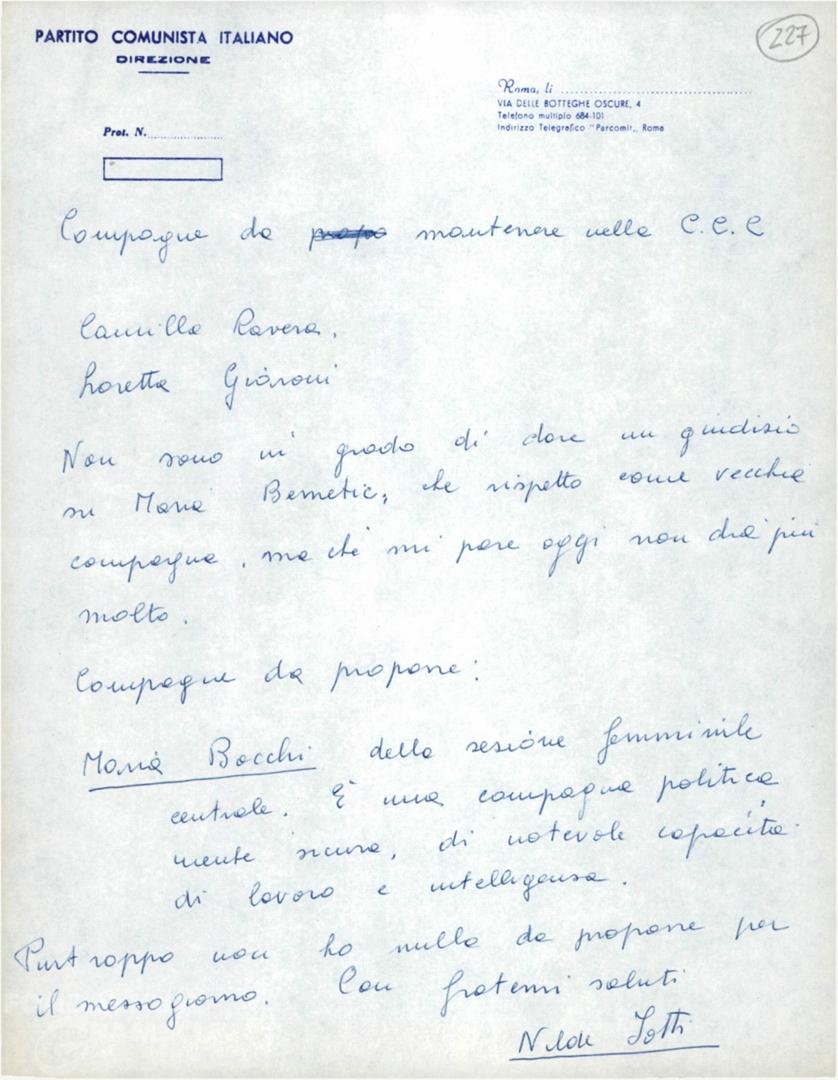 PARTITO COMUNISTA ITALIANO
DIREZIONE
227
Roma, li
VIA DELLE BOTTEGHE OSCURE, 4
Telefono multiplo 684-101
Indirizzo Telegrafico "Parcomit„ Roma
Prot. N.
Compagne da mantenere nella C.C.C
Camilla Ravera.
Loretta Giaroni
Non sono in grado di dare un giudizio
su Maria Bernetic, che rispetto come vecchia
compagna, ma che mi pare oggi non dia più
molto.
Compagne da proporre:
Maria Bocchi della sezione femminile
centrale. È una compagna politica
mente sicura, di notevole capacità
di lavoro e intelligenza.
Purtroppo non ho nulla da proporre per
il mezzogiorno. Con fraterni saluti
Nilde Jotti